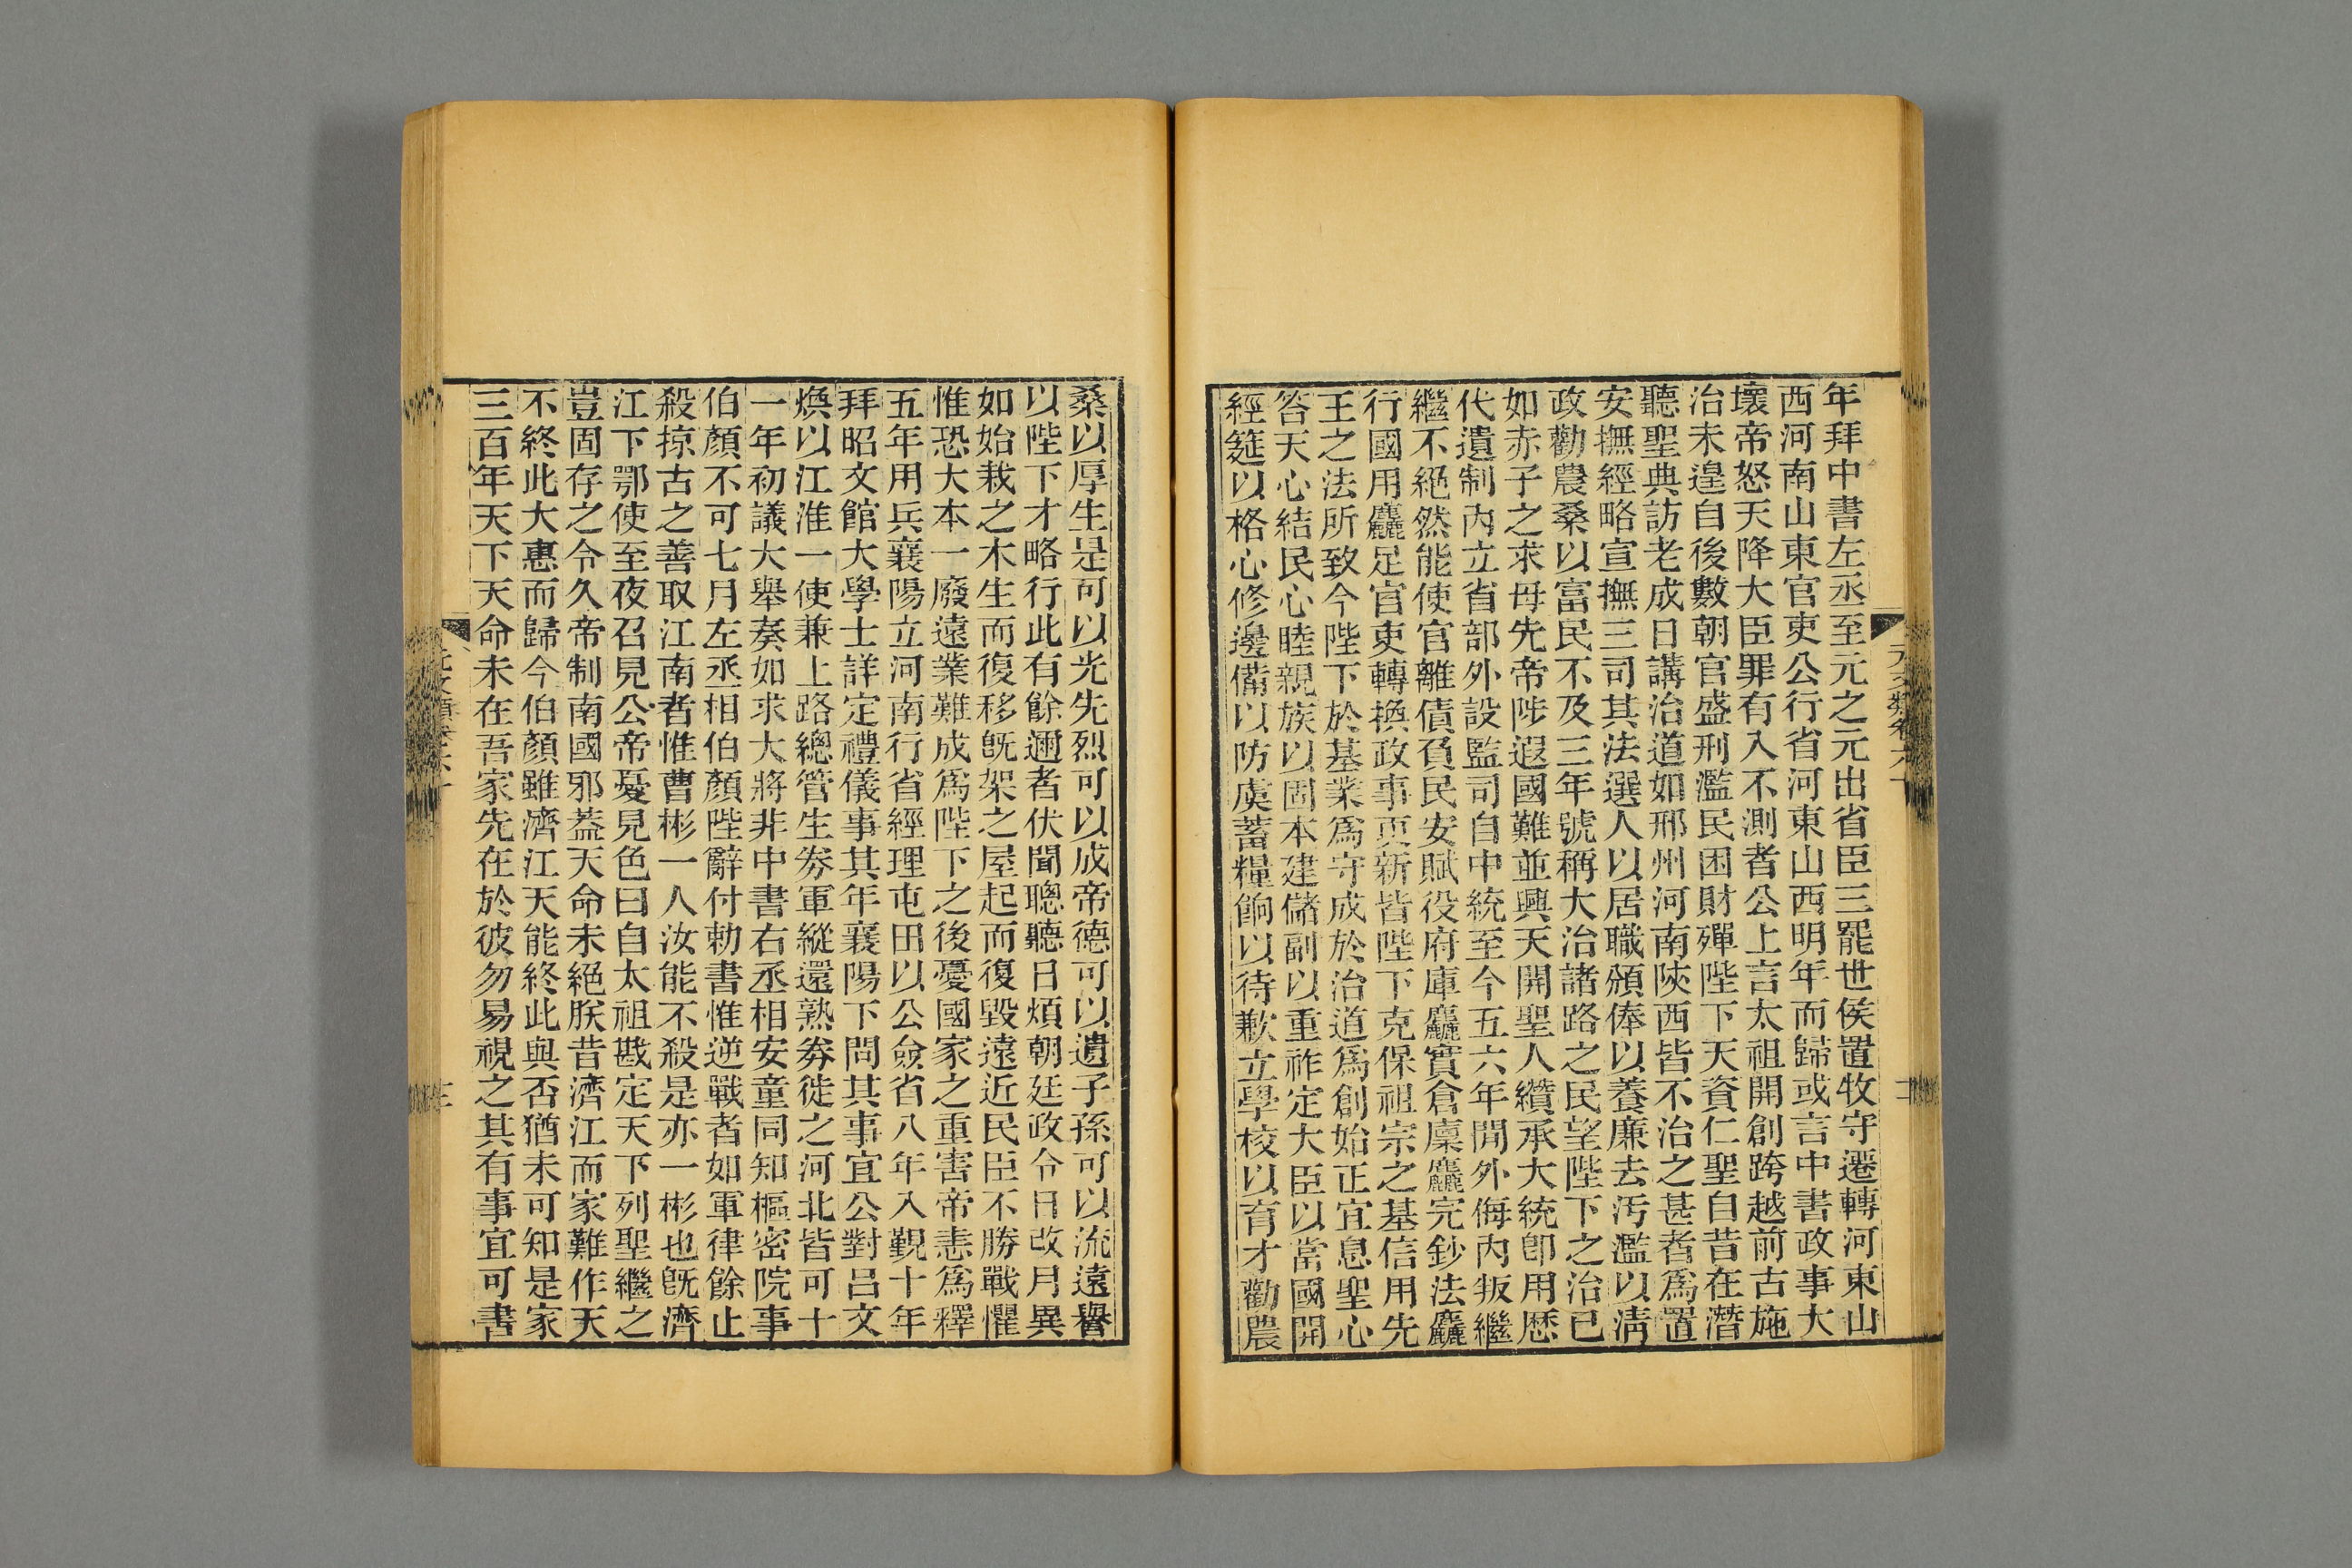 年拜中書左丞至元之元出省臣三罷世侯置牧守遷轉河東山
西河南山東官吏公行省河東山西明年而歸或言中書政事大
壞帝怒天降大臣罪有入不測者公上言太祖開創跨越前古施
治未遑自後數朝官盛刑濫民困財殫陛下天資仁聖自昔在潛
聽聖典訪老成日講治道如邢州河南陝西皆不治之甚者爲置
安撫經略宣撫三司其法選人以居職頒俸以養廉去汚濫以淸
政勸農桑以富民不及三年號稱大治諸路之民望陛下之治已
如赤子之求母先帝陟遐國難並興天開聖人纘承大統卽用歷
代遺制內立省部外設監司自中統至今五六年間外侮內叛繼
繼不絕然能使官離債負民安賦役府庫麤實倉廩麤完鈔法麤
行國用麤足官吏轉換政事更新皆陛下克保祖宗之基信用先
王之法所致今陛下於基業爲守成於治道爲創始正宜息聖心
答天心結民心睦親族以固本建儲副以重祚定大臣以當國開
經筵以格心修邊備以防虞蓄糧餉以待歉立學校以育才勸農
桑以厚生是可以光先烈可以成帝德可以遺子孫可以流遠譽
以陛下才略行此有餘邇者伏聞聰聽日煩朝廷政令日改月異
如始栽之木生而復移旣架之屋起而復毀遠近民臣不勝戰懼
惟恐大本一廢遠業難成爲陛下之後憂國家之重害帝恚爲釋
五年用兵襄陽立河南行省經理屯田以公僉省八年入覲十年
拜昭文館大學士詳定禮儀事其年襄陽下問其事宜公對呂文
煥以江淮一使兼上路總管生券軍縱還熟券徙之河北皆可十
一年初議大舉奏如求大將非中書右丞相安童同知樞密院事
伯顏不可七月左丞相伯顏陛辭付勅書惟逆戰者如軍律餘止
殺掠古之善取江南者惟曹彬一人汝能不殺是亦一彬也旣濟
江下鄂使至夜召見公帝憂見色曰自太祖戡定天下列聖繼之
豈固存之令久帝制南國邪蓋天命未絕朕昔濟江而家難作天
不終此大惠而歸今伯顏雖濟江天能終此與否猶未可知是家
三百年天下天命未在吾家先在於彼勿易視之其有事宜可書